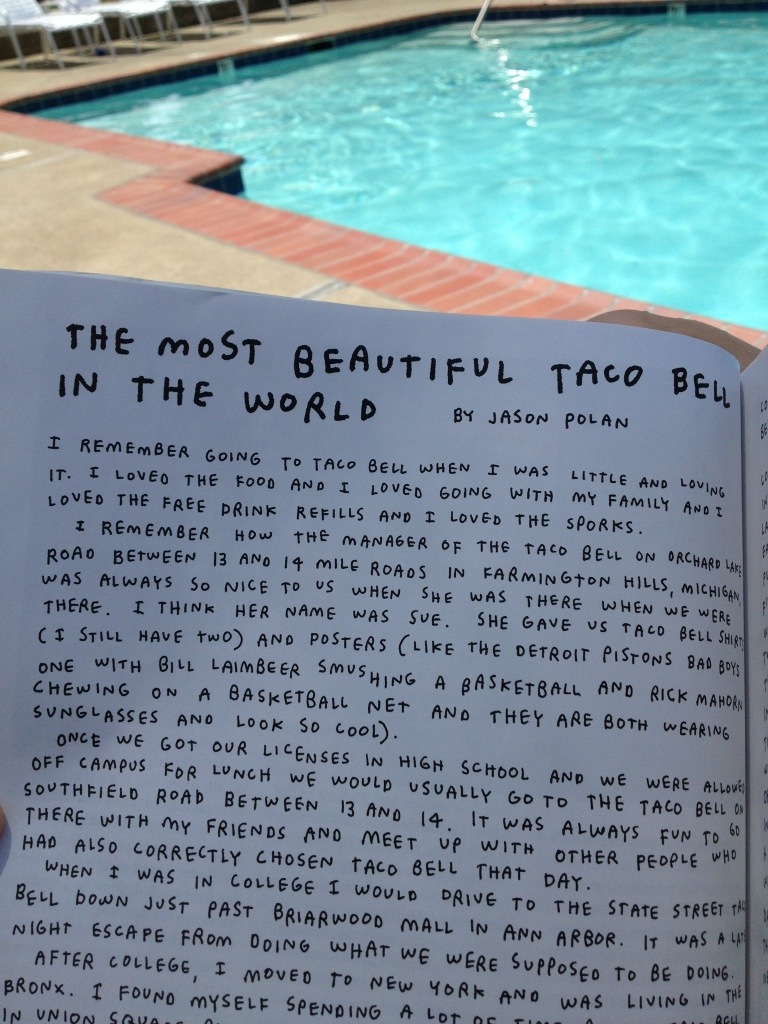 THE MOST BEAUTIFUL TACO BELL
IN THE WORLD BY JASON POLAN
I REMEMBER GOING TO TACO BELL WHEN I WAS LITTLE AND LOVING
IT. I LOVED THE FOOD AND I LOVED GOING WITH MY FAMILY AND I
LOVED THE FREE DRINK REFILLS AND I LOVED THE SPORKS.
I REMEMBER HOW THE MANAGER OF THE TACO BELL ON ORCHARD LAKE
ROAD BETWEEN 13 AND 14 MILE ROADS IN FARMINGTON HILLS, MICHIGAN,
WAS ALWAYS SO NICE TO US WHEN SHE WAS THERE WHEN WE WERE
THERE. I THINK HER NAME WAS SUE. SHE GAVE US TACO BELL SHIRTS
(I STILL HAVE TWO) AND POSTERS (LIKE THE DETROIT PISTONS BAD BOYS
ONE WITH BILL LAIMBEER SMUSHING A BASKETBALL AND RICK MAHORN
CHEWING ON A BASKETBALL NET AND THEY ARE BOTH WEARING
SUNGLASSES AND LOOK SO COOL).
ONCE WE GOT OUR LICENSES IN HIGH SCHOOL AND WE WERE ALLOWED
OFF CAMPUS FOR LUNCH WE WOULD USUALLY GO TO THE TACO BELL ON
SOUTHFIELD ROAD BETWEEN 13 AND 14. IT WAS ALWAYS FUN TO GO
THERE WITH MY FRIENDS AND MEET UP WITH OTHER PEOPLE WHO
HAD ALSO CORRECTLY CHOSEN TACO BELL THAT DAY.
WHEN I WAS IN COLLEGE I WOULD DRIVE TO THE STATE STREET
BELL DOWN JUST PAST BRIARWOOD MALL IN ANN ARBOR. IT WAS A
NIGHT ESCAPE FROM DOING WHAT WE WERE SUPPOSED TO BE DOING.
AFTER COLLEGE, I MOVED TO NEW YORK AND WAS LIVING IN THE
BRONX. I FOUND MYSELF SPENDING A LOT OF
IN UNION